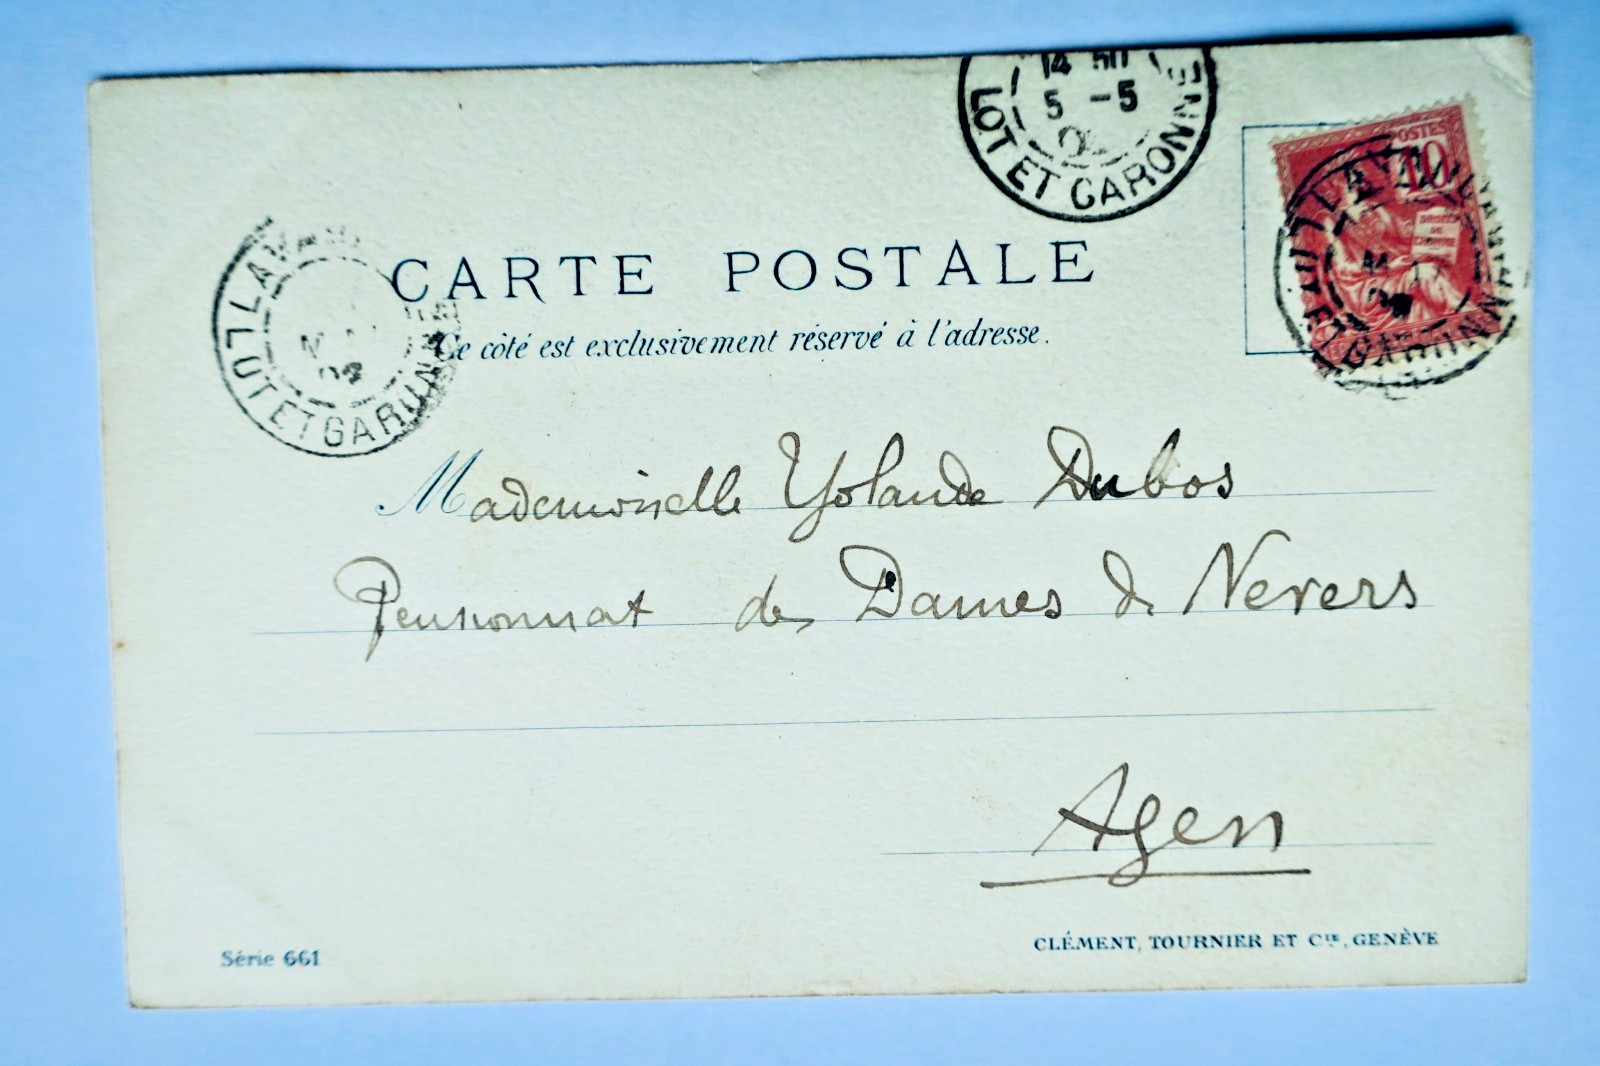 14 50
5 -5
LOT ET GARONNE
POSTES
10
DROITS
DE
L'HOMME
LOT ET GARONNE
CARTE POSTALE
Ce côté est exclusivement réservé à l'adresse.
Mademoiselle Yolande Dubos
Pensionnat des Dames de Nevers
Agen
CLÉMENT, TOURNIER ET Cie, GENÈVE
Série 661